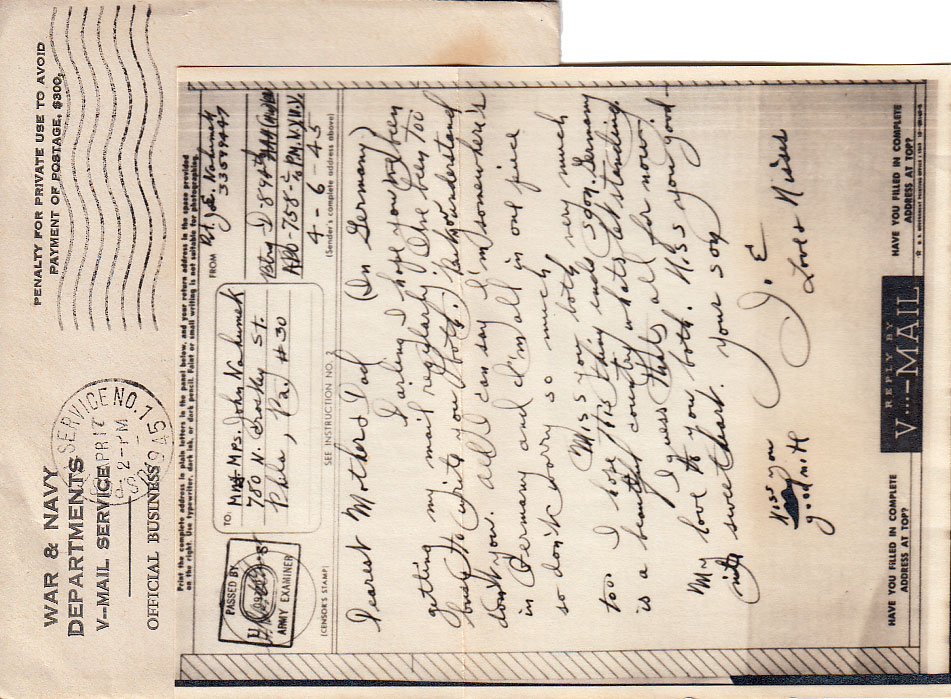 WAR & NAVY
DEPARTMENTS
V---MAIL SERVICE
OFFICIAL BUSINESS
SERVICE NO. 1
2-PM
PENALTY FOR PRIVATE USE TO AVOID
PAYMENT OF POSTAGE, $300
Print the complete address in plain letters in the panel below, and your return address in the space provided
on the right. Use typewriter, dark ink, or dark pencil. Faint or small writing is not suitable for photographing.
PASSED BY
ARMY EXAMINER
(CENSOR'S STAMP)
TO: Mr + Mrs. John Vahumek
780 N. Brockley St.
Phila, Pa, #30
SEE INSTRUCTION NO. 2
FROM
Pvt. J. E. Vahumek
33589447
Btry D-894th AAA
APO-758- % P.M. N.Y. N.Y.
4-6-45
(Sender's complete address above)
Dearest Mother & Dad (In Germany)
Darling I hope you've been
getting my mail regularly. I've been too
busy to write you both. but understand
don't you. all I can say I'm somewhere's
in Germany and I'm all in one piece
so don't worry so much
Miss you both very much
too. I hope this thing ends soon. Germany
is a beautiful country whats left standing.
I guess thats all for now
My love to you both. Kiss you good-
nite sweetheart.
your son
J. E
Love & Kisses
Kiss you
good nite
HAVE YOU FILLED IN COMPLETE
ADDRESS AT TOP?
REPLY BY
V...-MAIL
HAVE YOU FILLED IN COMPLETE
ADDRESS AT TOP?